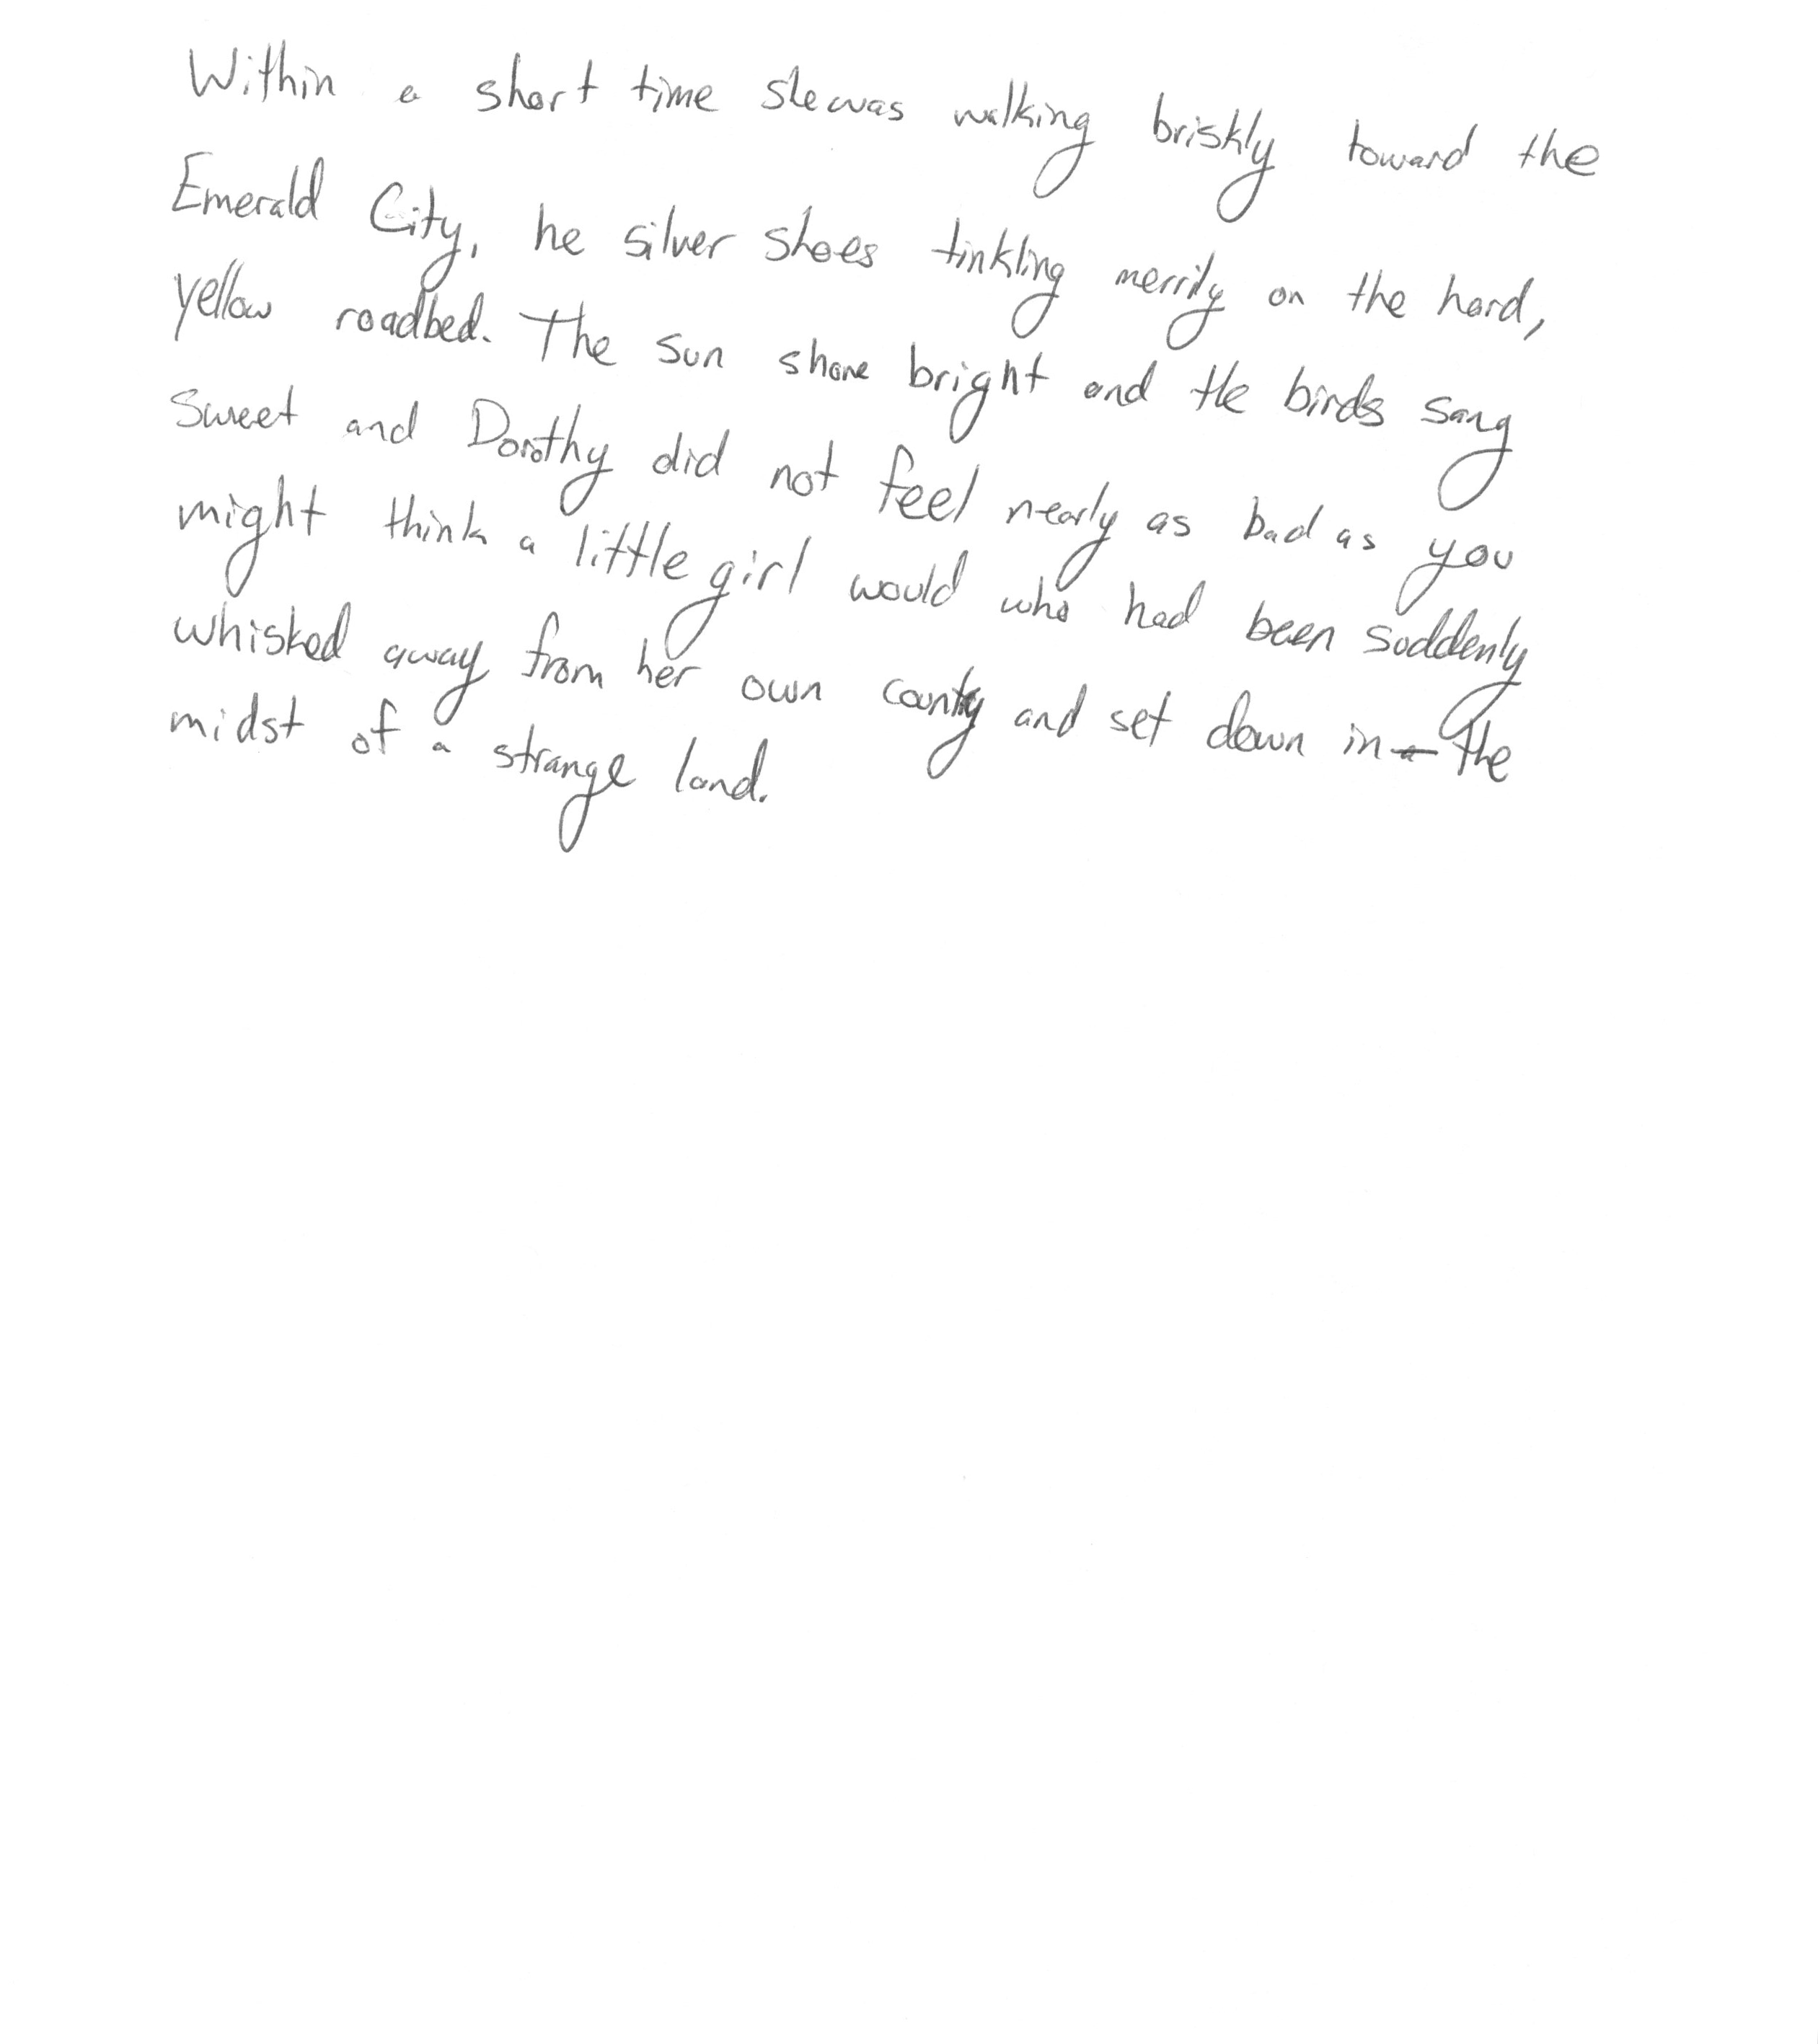 Within a short time she was walking briskly toward the
Emerald City, he silver shoes tinkling merrily on the hard,
yellow roadbed. The sun shone bright and the birds sang
sweet and Dorothy did not feel nearly as bad as you
might think a little girl would who had been suddenly
whisked away from her own country and set down in the
midst of a strange land.